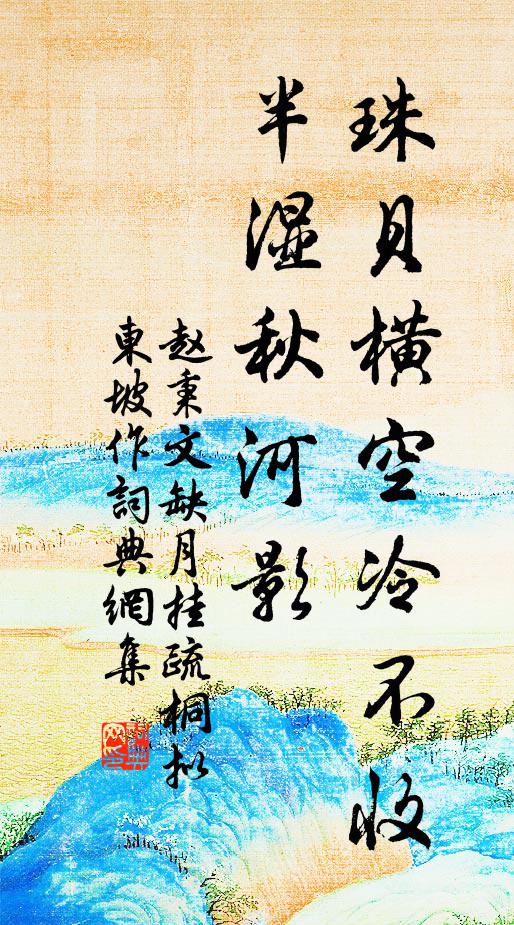 珠貝橫空冷不收
半濕秋河影
赵秉文缺月挂疏桐拟
東坡作詞典網集